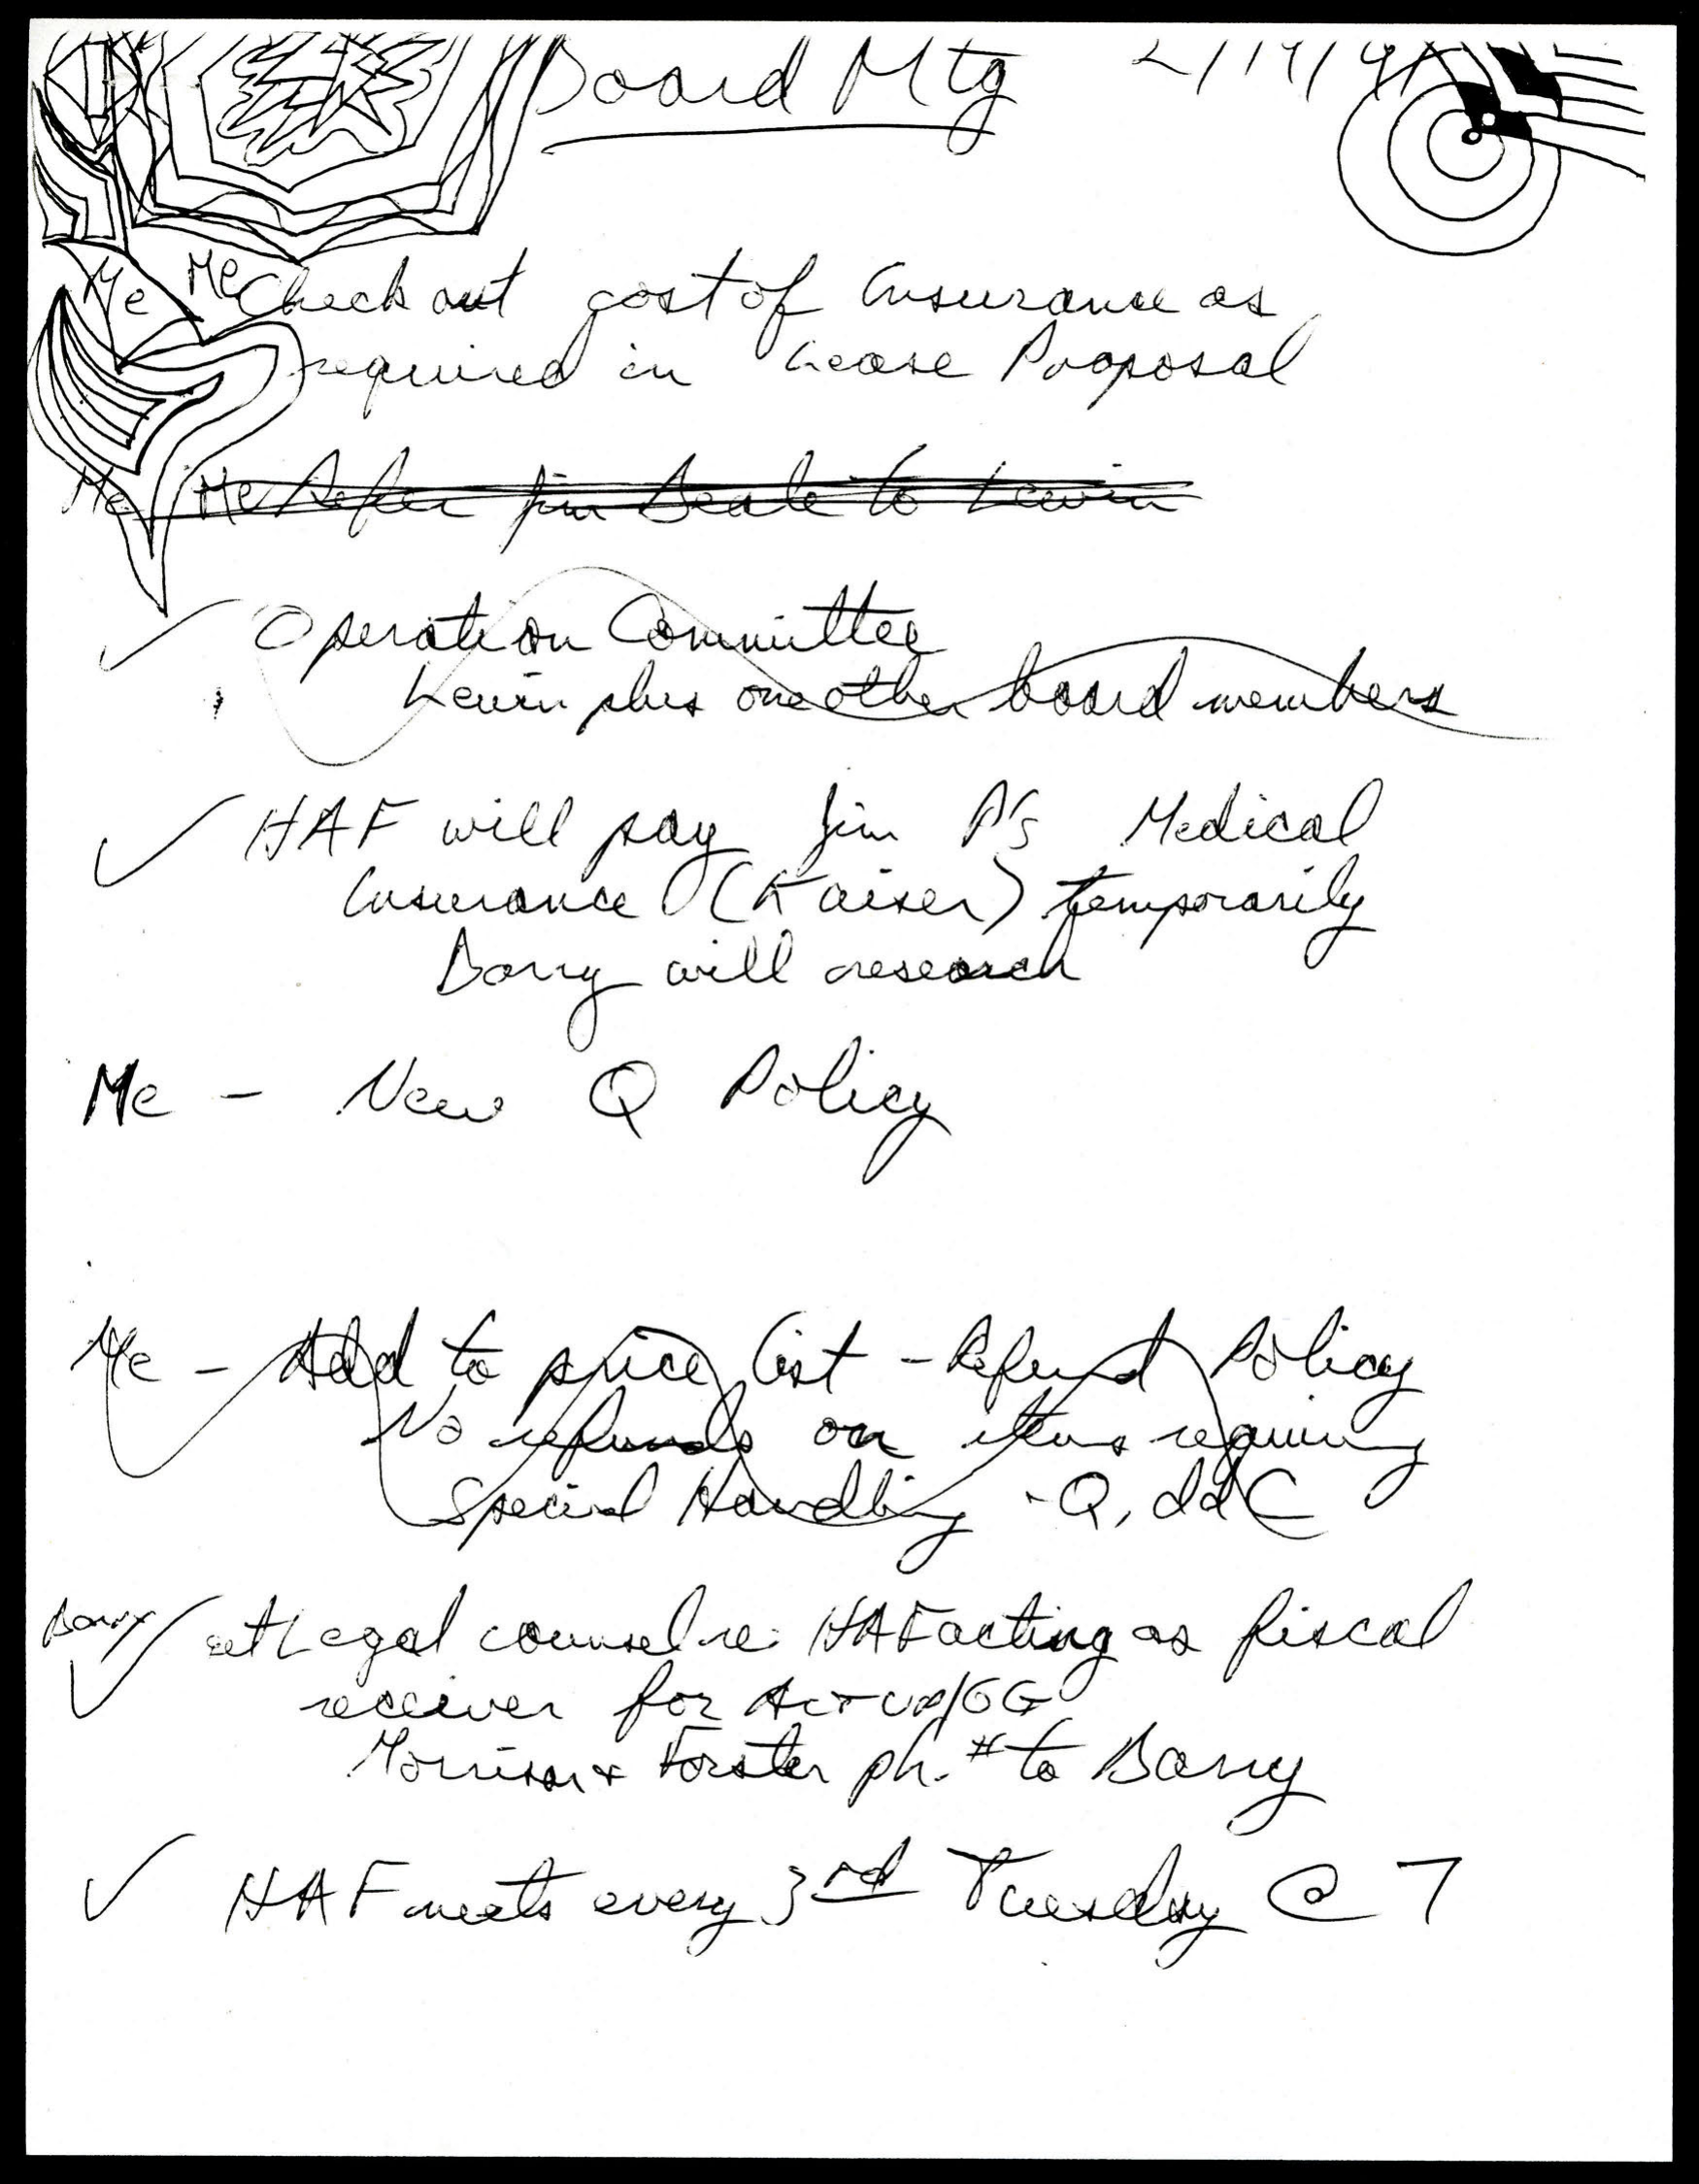 Board Mtg 2/19/91
Me Me Check out cost of Insurance as
required in Lease Proposal
Me Me Refer Jim Beale to Lewin
Operation Committee
Lewin plus one other board members
HAF will pay Jim P's Medical
Insurance (Kaiser) temporarily
Barry will research
Me - New Q Policy
Me - Add to price list - Refund Policy
No refunds on items requiring
Special Handling - Q, ddC
Barry Legal counsel re: HAF acting as fiscal
receiver for ACT UP/GG
Morrison & Forster ph. # to Barry
HAF meets every 3rd Tuesday @ 7